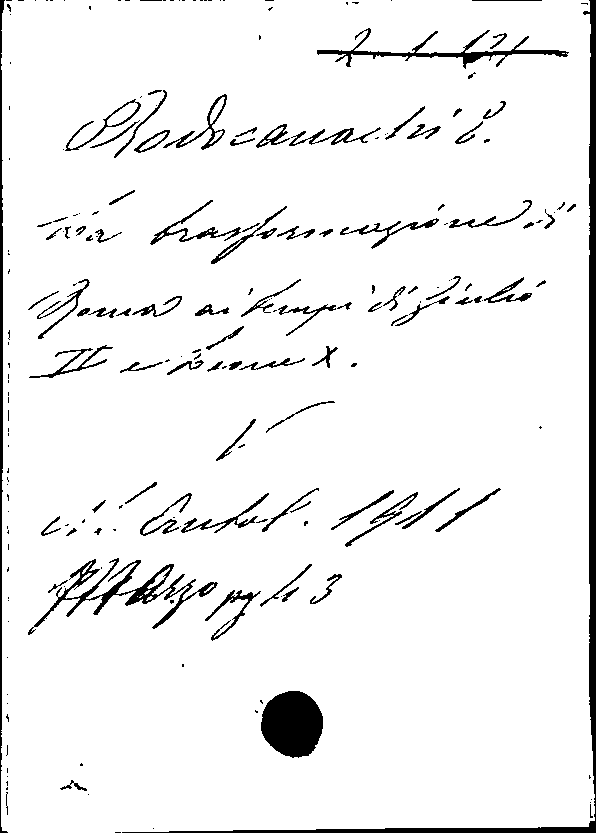 2-1-121
Rodocanachi E.
La trasformazione di
Roma ai tempi di Giulio
II e Leone X.
in Antol. 1911
Marzo pg 43